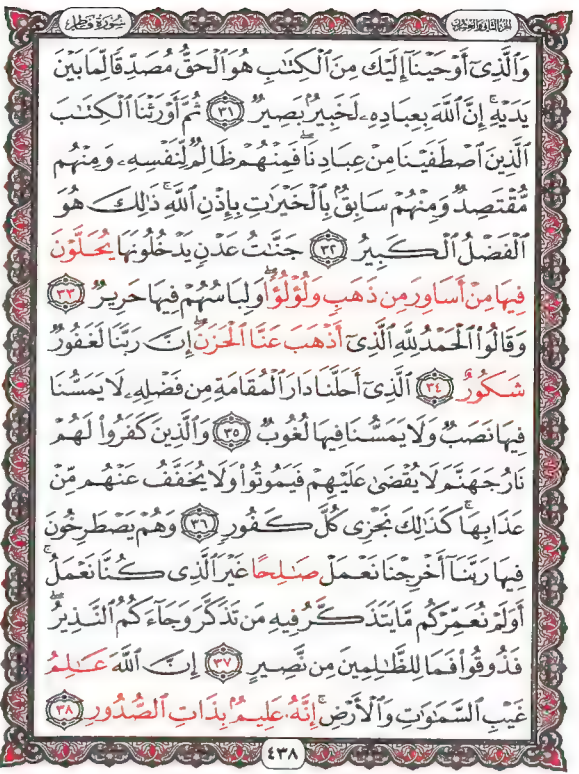 سُورَةُ فَاطِرٍ
الجزء الثاني والعشرون
وَٱلَّذِىٓ أَوْحَيْنَآ إِلَيْكَ مِنَ ٱلْكِتَٰبِ هُوَ ٱلْحَقُّ مُصَدِّقًا لِّمَا بَيْنَ
يَدَيْهِ ۗ إِنَّ ٱللَّهَ بِعِبَادِهِۦ لَخَبِيرٌۢ بَصِيرٌ ٣١ ثُمَّ أَوْرَثْنَا ٱلْكِتَٰبَ
ٱلَّذِينَ ٱصْطَفَيْنَا مِنْ عِبَادِنَا ۖ فَمِنْهُمْ ظَالِمٌ لِّنَفْسِهِۦ وَمِنْهُم
مُّقْتَصِدٌ وَمِنْهُمْ سَابِقٌۢ بِٱلْخَيْرَٰتِ بِإِذْنِ ٱللَّهِ ۚ ذَٰلِكَ هُوَ
ٱلْفَضْلُ ٱلْكَبِيرُ ٣٢ جَنَّٰتُ عَدْنٍ يَدْخُلُونَهَا يُحَلَّوْنَ
فِيهَا مِنْ أَسَاوِرَ مِن ذَهَبٍ وَلُؤْلُؤًا ۖ وَلِبَاسُهُمْ فِيهَا حَرِيرٌ ٣٣
وَقَالُوا۟ ٱلْحَمْدُ لِلَّهِ ٱلَّذِىٓ أَذْهَبَ عَنَّا ٱلْحَزَنَ ۖ إِنَّ رَبَّنَا لَغَفُورٌ
شَكُورٌ ٣٤ ٱلَّذِىٓ أَحَلَّنَا دَارَ ٱلْمُقَامَةِ مِن فَضْلِهِۦ لَا يَمَسُّنَا
فِيهَا نَصَبٌ وَلَا يَمَسُّنَا فِيهَا لُغُوبٌ ٣٥ وَٱلَّذِينَ كَفَرُوا۟ لَهُمْ
نَارُ جَهَنَّمَ لَا يُقْضَىٰ عَلَيْهِمْ فَيَمُوتُوا۟ وَلَا يُخَفَّفُ عَنْهُم مِّنْ
عَذَابِهَا ۚ كَذَٰلِكَ نَجْزِى كُلَّ كَفُورٍ ٣٦ وَهُمْ يَصْطَرِخُونَ
فِيهَا رَبَّنَآ أَخْرِجْنَا نَعْمَلْ صَٰلِحًا غَيْرَ ٱلَّذِى كُنَّا نَعْمَلُ ۚ
أَوَلَمْ نُعَمِّرْكُم مَّا يَتَذَكَّرُ فِيهِ مَن تَذَكَّرَ وَجَآءَكُمُ ٱلنَّذِيرُ ۖ
فَذُوقُوا۟ فَمَا لِلظَّٰلِمِينَ مِن نَّصِيرٍ ٣٧ إِنَّ ٱللَّهَ عَٰلِمُ
غَيْبِ ٱلسَّمَٰوَٰتِ وَٱلْأَرْضِ ۚ إِنَّهُۥ عَلِيمٌۢ بِذَاتِ ٱلصُّدُورِ ٣٨
٤٣٨